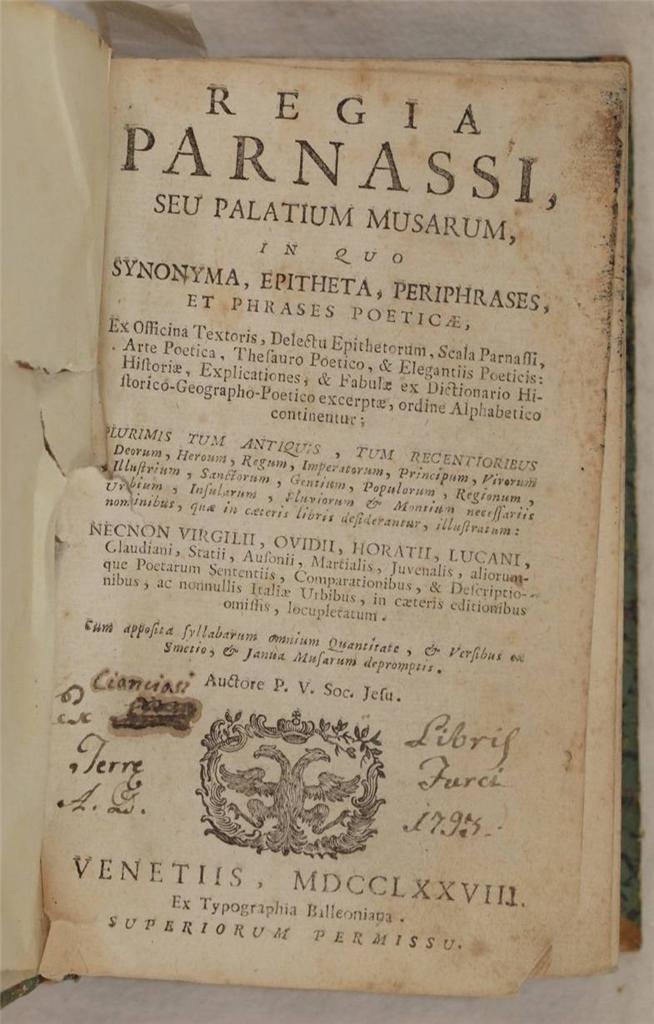 REGIA
PARNASSI,
SEU PALATIUM MUSARUM,
IN QUO
SYNONYMA, EPITHETA, PERIPHRASES,
ET PHRASES POETICÆ,
Ex Officina Textoris, Delectu Epithetorum, Scala Parnassi,
Arte Poetica, Thesauro Poetico, & Elegantiis Poeticis:
Historiæ, Explicationes, & Fabulæ ex Dictionario Hi-
storico-Geographo-Poetico excerptæ, ordine Alphabetico
continentur;
PLURIMIS TUM ANTIQUIS, TUM RECENTIORIBUS
Deorum, Heroum, Regum, Imperatorum, Principum, Virorum
Illustrium, Sanctorum, Gentium, Populorum, Regionum,
Urbium, Insularum, Fluviorum & Montium necessariis
nominibus, quæ in cæteris libris desiderantur, illustratum:
NECNON VIRGILII, OVIDII, HORATII, LUCANI,
Claudiani, Statii, Ausonii, Martialis, Juvenalis, aliorum-
que Poetarum Sententiis, Comparationibus, & Descriptio-
nibus, ac nonnullis Italiæ Urbibus, in cæteris editionibus
omissis, locupletatum.
Cum apposita syllabarum omnium Quantitate, & Versibus ex
Smetio, & Janua Musarum depromptis.
Auctore P. V. Soc. Jesu.
Cianciosi
ex Libris
Terre Furci
A. D. 1793.
VENETIIS, MDCCLXXVIII.
Ex Typographia Balleoniana.
SUPERIORUM PERMISSU.